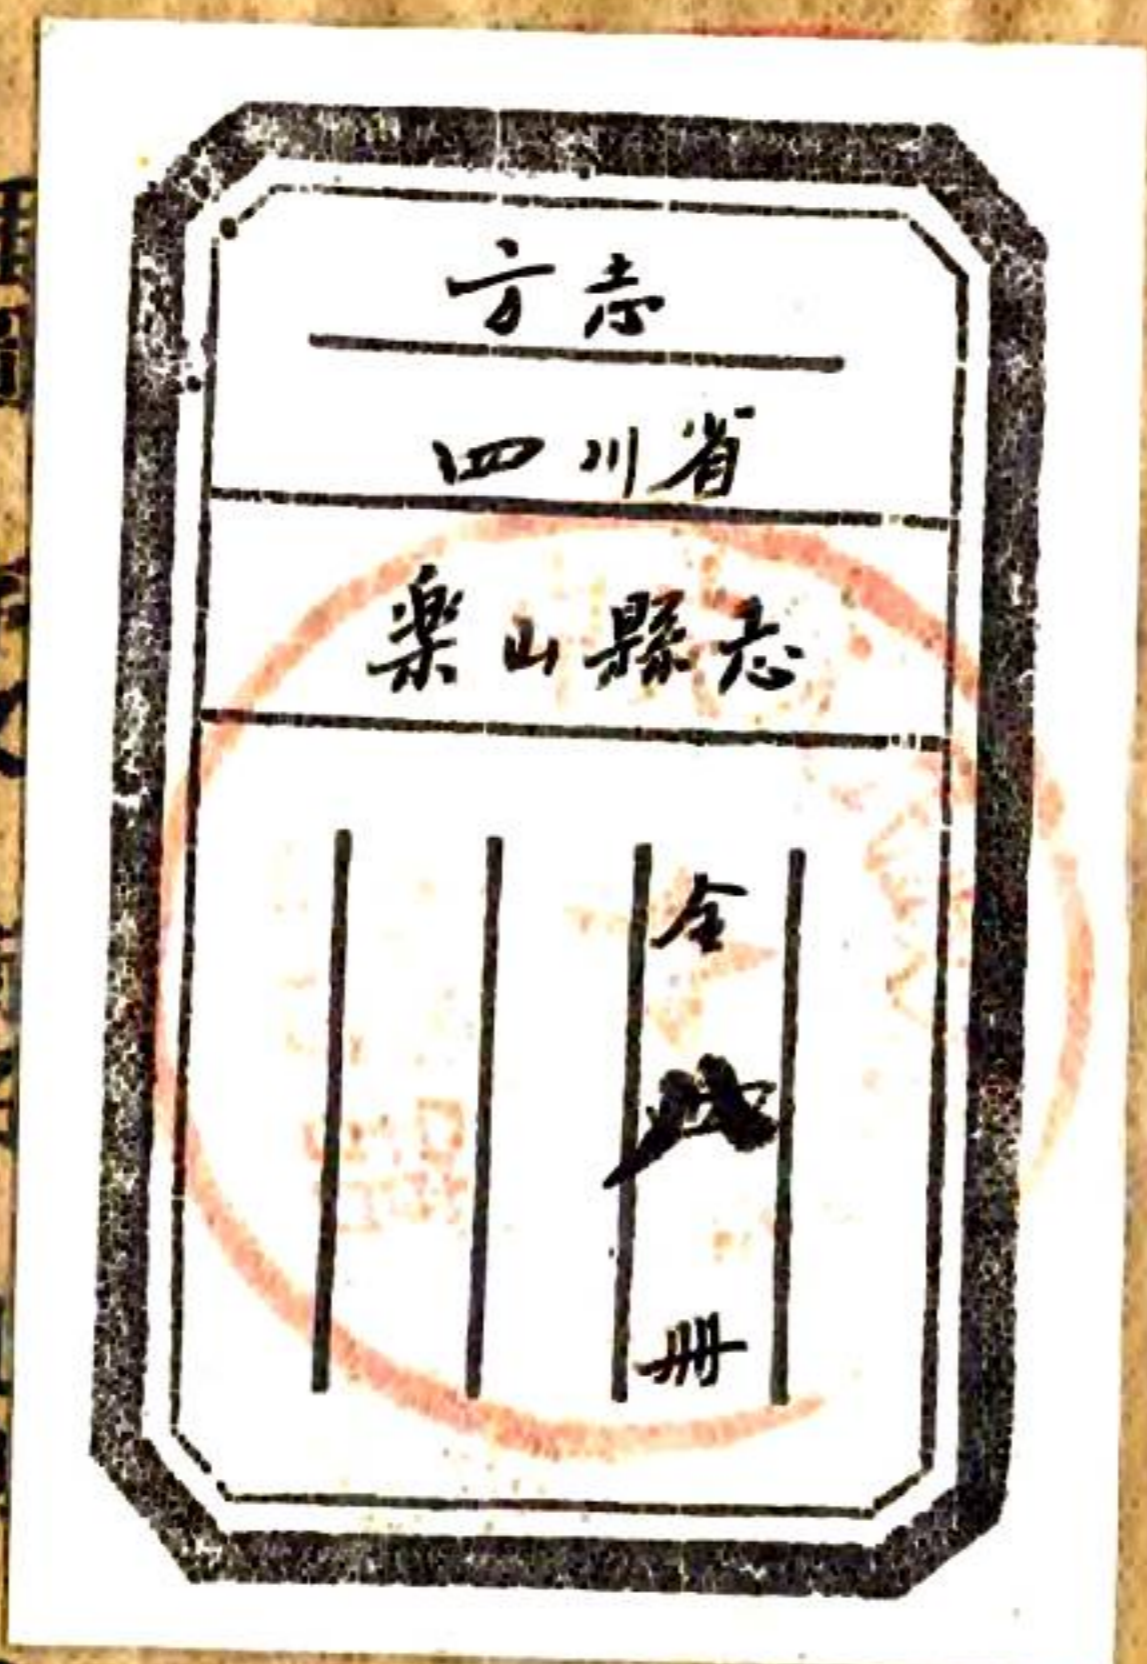 方志
四川省
楽山縣志
全
册